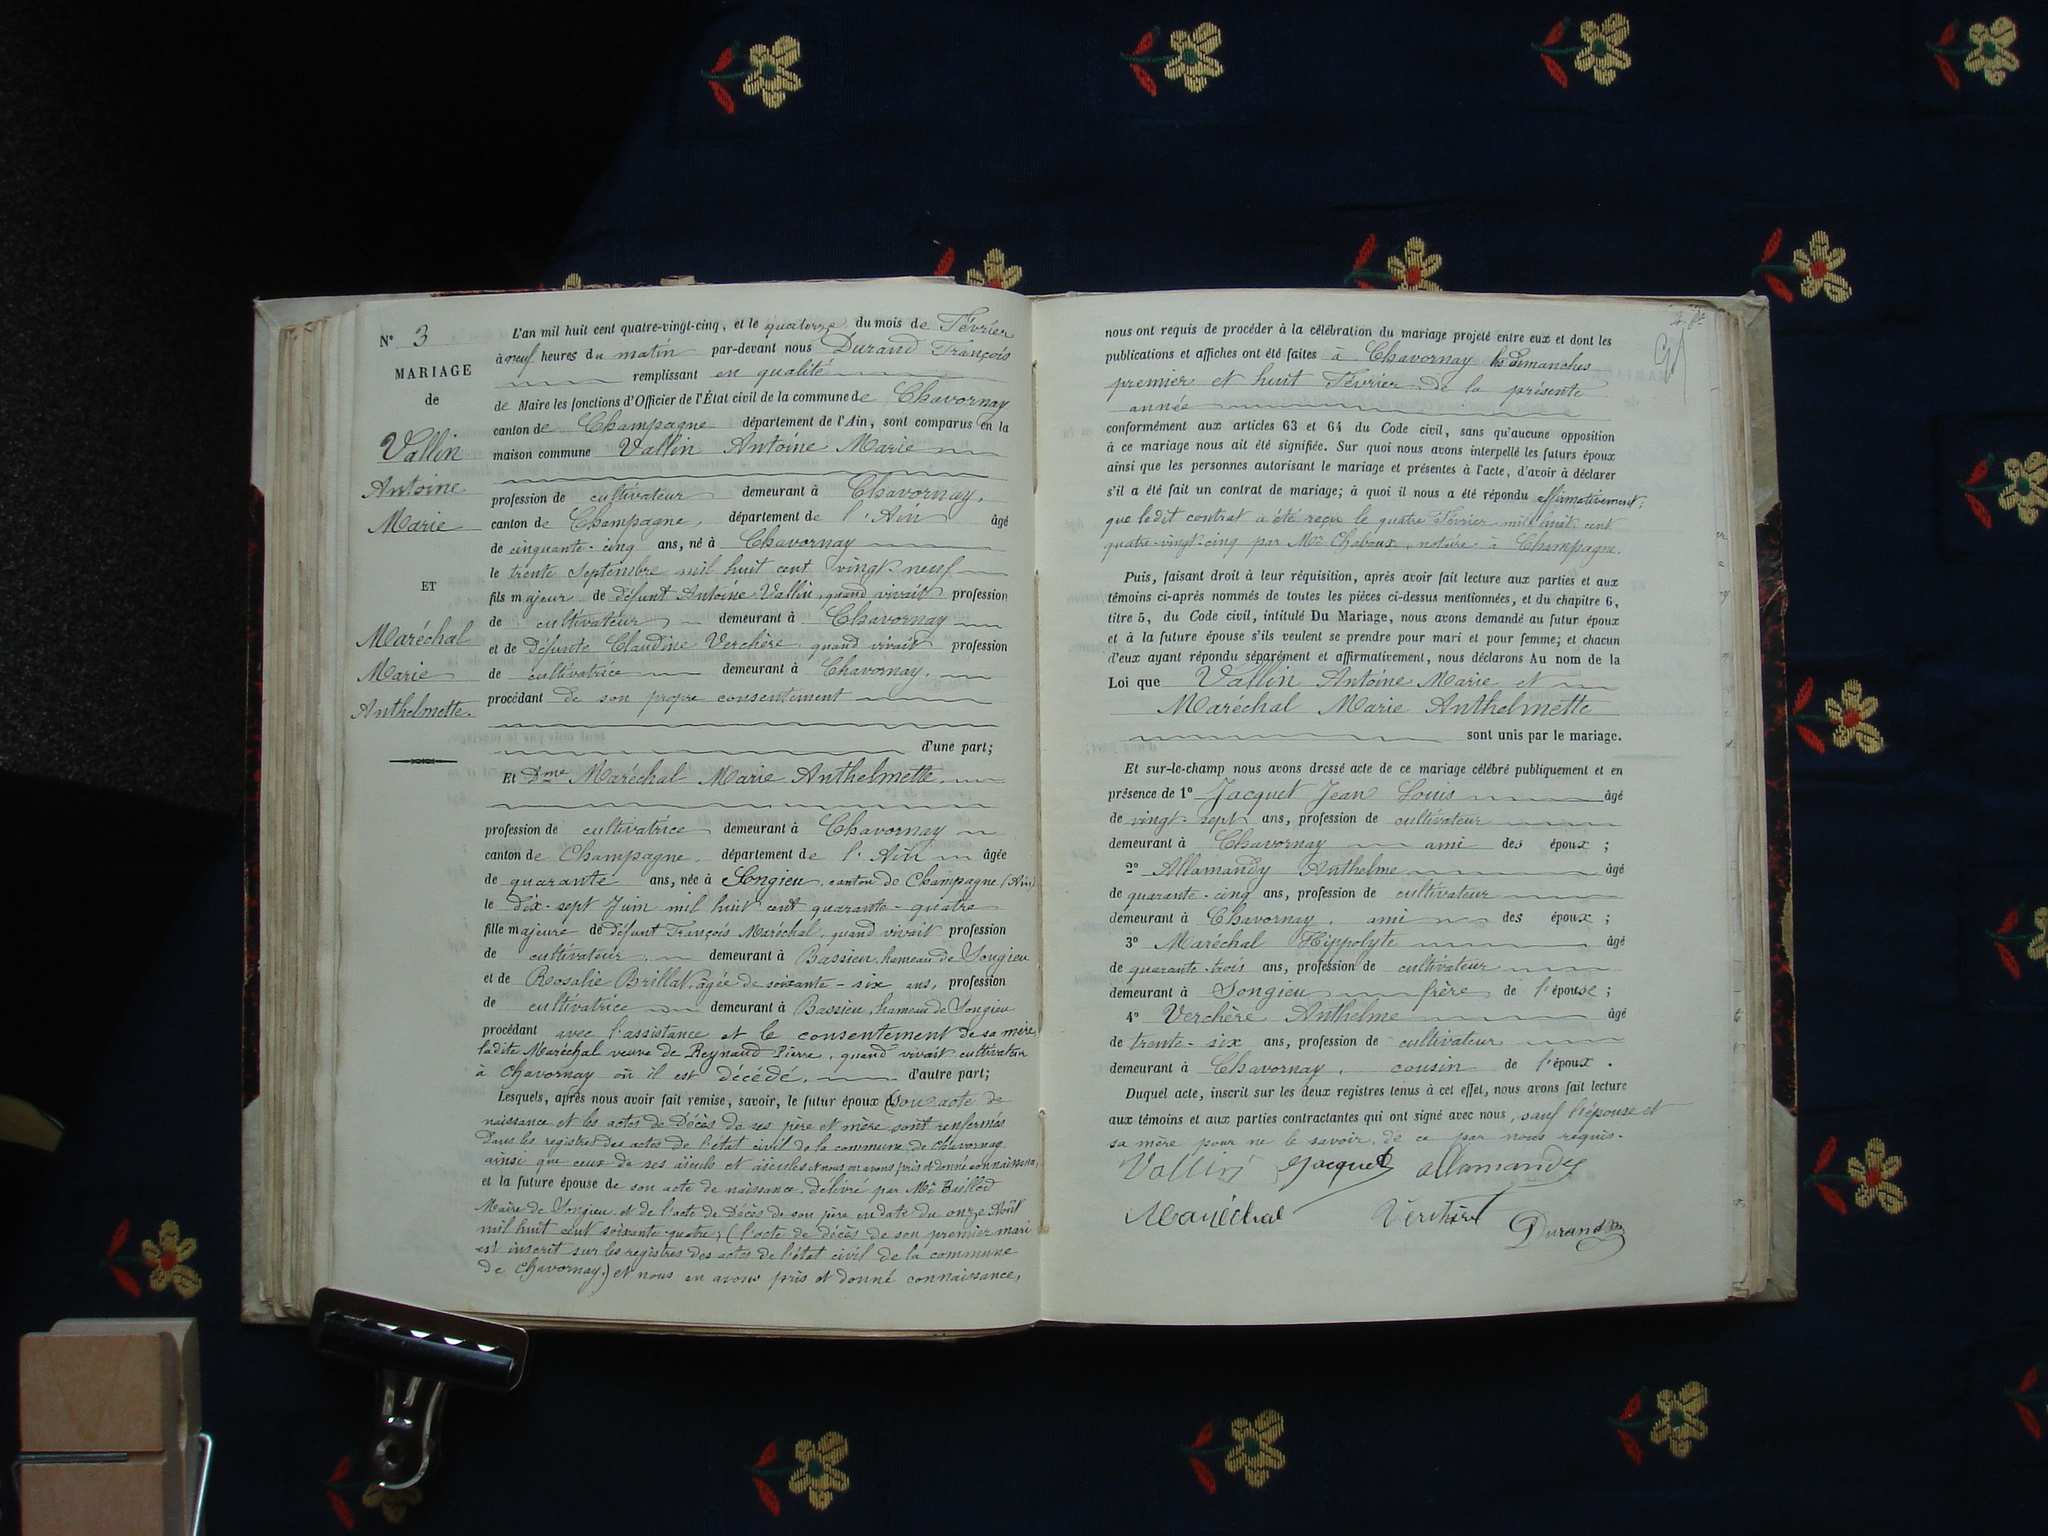 N° 3
MARIAGE
de
Vallin
Antoine
Marie
ET
Maréchal
Marie
Anthelmette.
L'an mil huit cent quatre-vingt-cinq, et le quatorze du mois de Février
à neuf heures du matin par-devant nous Durand François
remplissant en qualité
de Maire les fonctions d'Officier de l'État civil de la commune de Chavornay
canton de Champagne département de l'Ain, sont comparus en la
maison commune Vallin Antoine Marie
profession de cultivateur demeurant à Chavornay,
canton de Champagne, département de l'Ain âgé
de cinquante-cinq ans, né à Chavornay
le trente Septembre mil huit cent vingt-neuf
fils majeur de défunt Antoine Vallin, quand vivait profession
de cultivateur demeurant à Chavornay
et de défunte Claudine Verchère, quand vivait profession
de cultivatrice demeurant à Chavornay,
procédant de son propre consentement
d'une part;
Et Dme Maréchal Marie Anthelmette,
profession de cultivatrice demeurant à Chavornay
canton de Champagne, département de l'Ain âgée
de quarante ans, née à Songieu, canton de Champagne (Ain)
le dix-sept Juin mil huit cent quarante-quatre
fille majeure de défunt François Maréchal, quand vivait profession
de cultivateur, demeurant à Bassieu, hameau de Songieu
et de Rosalie Brillat, agée de soixante-six ans, profession
de cultivatrice demeurant à Bassieu, hameau de Songieu
procédant avec l'assistance et le consentement de sa mère,
ladite Maréchal veuve de Reynaud Pierre, quand vivait cultivateur
à Chavornay où il est décédé, d'autre part;
Lesquels, après nous avoir fait remise, savoir, le futur époux (son acte de
naissance et les actes de décès de ses père et mère sont renfermés
dans les registres des actes de l'état civil de la commune de Chavornay
ainsi que ceux de ses aïeuls et aïeules et nous en avons pris et donné connaissance,
et la future épouse de son acte de naissance délivré par Mr
Maire de Songieu et de l'acte de décès de son père en date du onze Août
mil huit cent soixante-quatre; (l'acte de décès de son premier mari
est inscrit sur les registres des actes de l'état civil de la commune
de Chavornay.) et nous en avons pris et donné connaissance,
nous ont requis de procéder à la célébration du mariage projeté entre eux et dont les
publications et affiches ont été faites à Chavornay les dimanches
premier et huit Février de la présente
année
conformément aux articles 63 et 64 du Code civil, sans qu'aucune opposition
à ce mariage nous ait été signifiée. Sur quoi nous avons interpellé les futurs époux
ainsi que les personnes autorisant le mariage et présentes à l'acte, d'avoir à déclarer
s'il a été fait un contrat de mariage; à quoi il nous a été répondu affirmativement;
que ledit contrat a été reçu le quatre Février mil huit cent
quatre-vingt-cinq par Me notaire à Champagne.
Puis, faisant droit à leur réquisition, après avoir fait lecture aux parties et aux
témoins ci-après nommés de toutes les pièces ci-dessus mentionnées, et du chapitre 6,
titre 5, du Code civil, intitulé Du Mariage, nous avons demandé au futur époux
et à la future épouse s'ils veulent se prendre pour mari et pour femme; et chacun
d'eux ayant répondu séparément et affirmativement, nous déclarons Au nom de la
Loi que Vallin Antoine Marie et
Maréchal Marie Anthelmette
sont unis par le mariage.
Et sur-le-champ nous avons dressé acte de ce mariage célébré publiquement et en
présence de 1° Jacquet Jean Louis âgé
de vingt-sept ans, profession de cultivateur
demeurant à Chavornay ami des époux;
2° Allamandy Anthelme âgé
de quarante-cinq ans, profession de cultivateur
demeurant à Chavornay, ami des époux;
3° Maréchal Hippolyte âgé
de quarante-trois ans, profession de cultivateur
demeurant à Songieu frère de l'épouse;
4° Verchère Anthelme âgé
de trente-six ans, profession de cultivateur
demeurant à Chavornay, cousin de l'époux.
Duquel acte, inscrit sur les deux registres tenus à cet effet, nous avons fait lecture
aux témoins et aux parties contractantes qui ont signé avec nous, sauf l'épouse et
sa mère pour ne le savoir, de ce par nous requis.
Vallin Jacquet allamandy
Maréchal Verchère
Durand